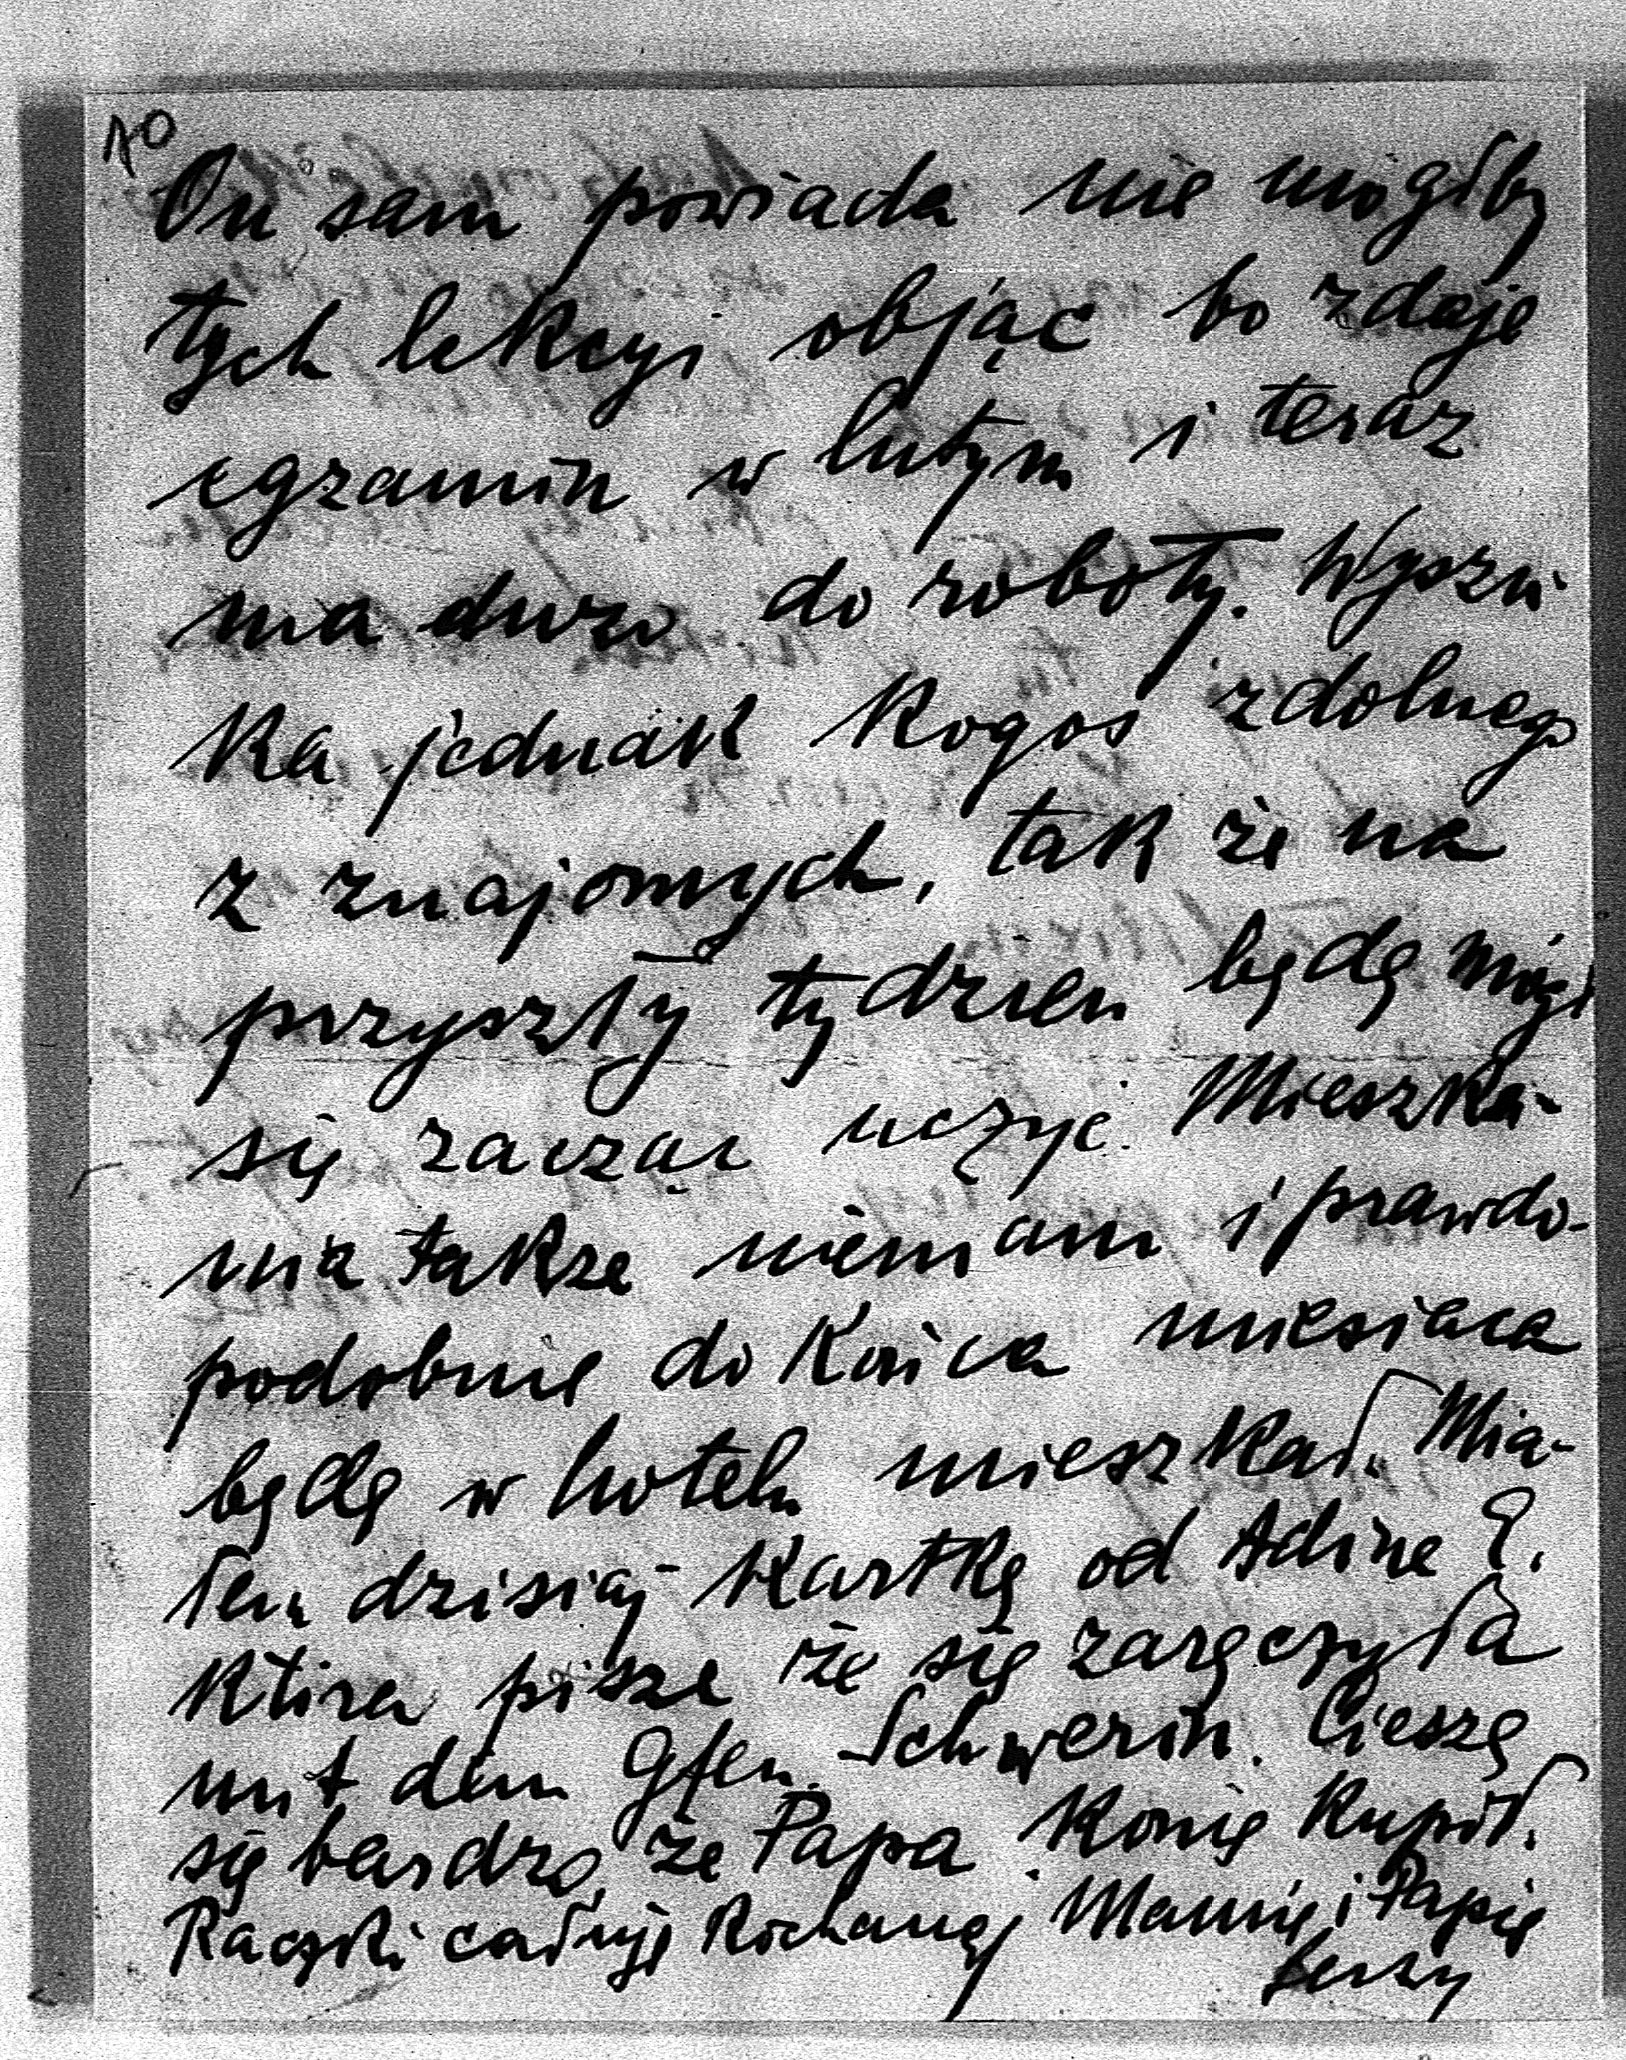 10
On sam powiada nie mógłby
tych lekcyi objąć bo zdaje
egzamin w lutym i teraz
ma dużo do roboty. Wyszu-
ka jednak kogoś zdolnego
z znajomych, tak że na
przyszły tydzien będę mógł
się zacząć uczyć. Mieszka-
nia takze niemam i prawdo-
podobnie do końca miesiaca
będę w hotelu mieszkał. Mia-
łem dzisiaj kartkę od Adine E.
ktora pisze że się zaręczyła
mit dem Gfen. Schwerin. Cieszę
się bardzo że Papa konie kupił.
Raczki całuję kochanej Mamie i Papie
Jerzy